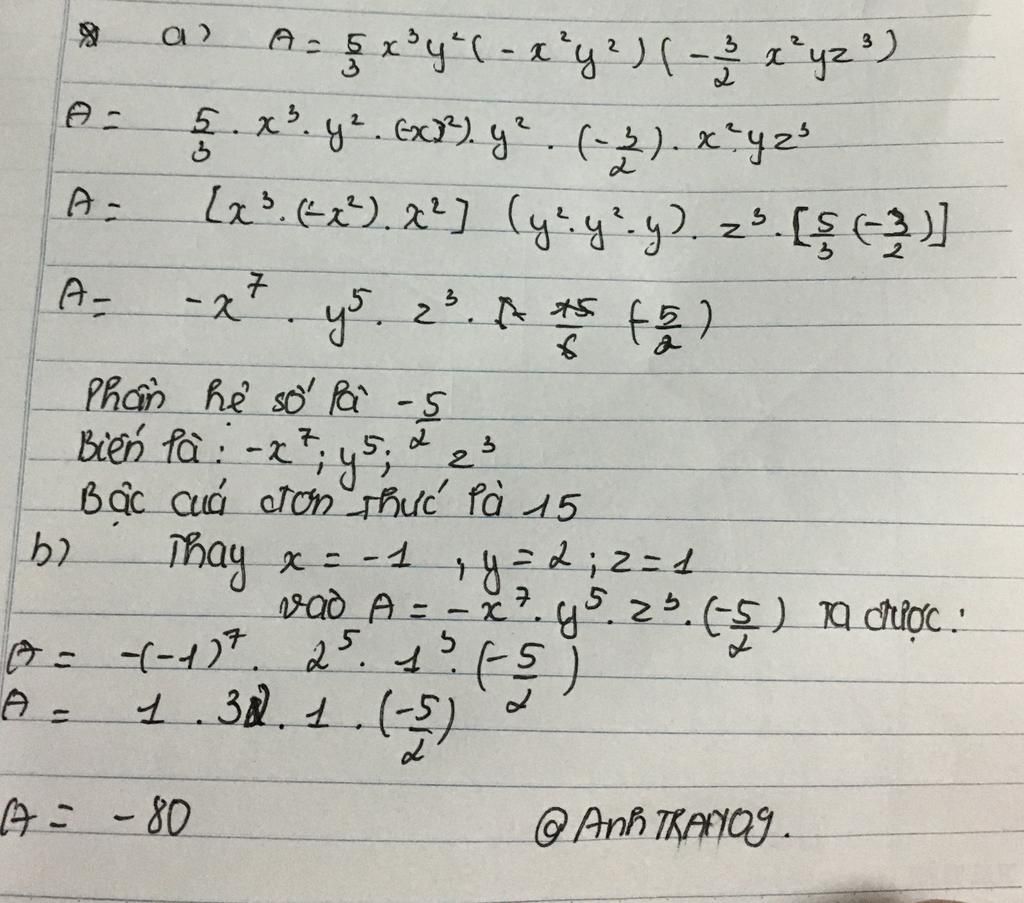 a) A = 5/3 x³y² (-x²y²) (-3/2 x²yz³)
A = 5/3 . x³ . y² . (-x)²) . y² . (-3/2) . x².yz³
A = [x³.(-x²).x²] (y².y².y). z³.[5/3 (-3/2)]
A = -x⁷ . y⁵ . z³ . (-5/2)
Phần hệ số là -5/2
Biến là : -x⁷; y⁵; z³
Bậc cuả đơn thức là 15
b) Thay x = -1 , y = 2 ; z = 1
vào A = -x⁷. y⁵. z³. (-5/2) ta được :
A = -(-1)⁷. 2⁵. 1³. (-5/2)
A = 1 . 32 . 1 . (-5/2)
A = -80 @AnhTRAN09.